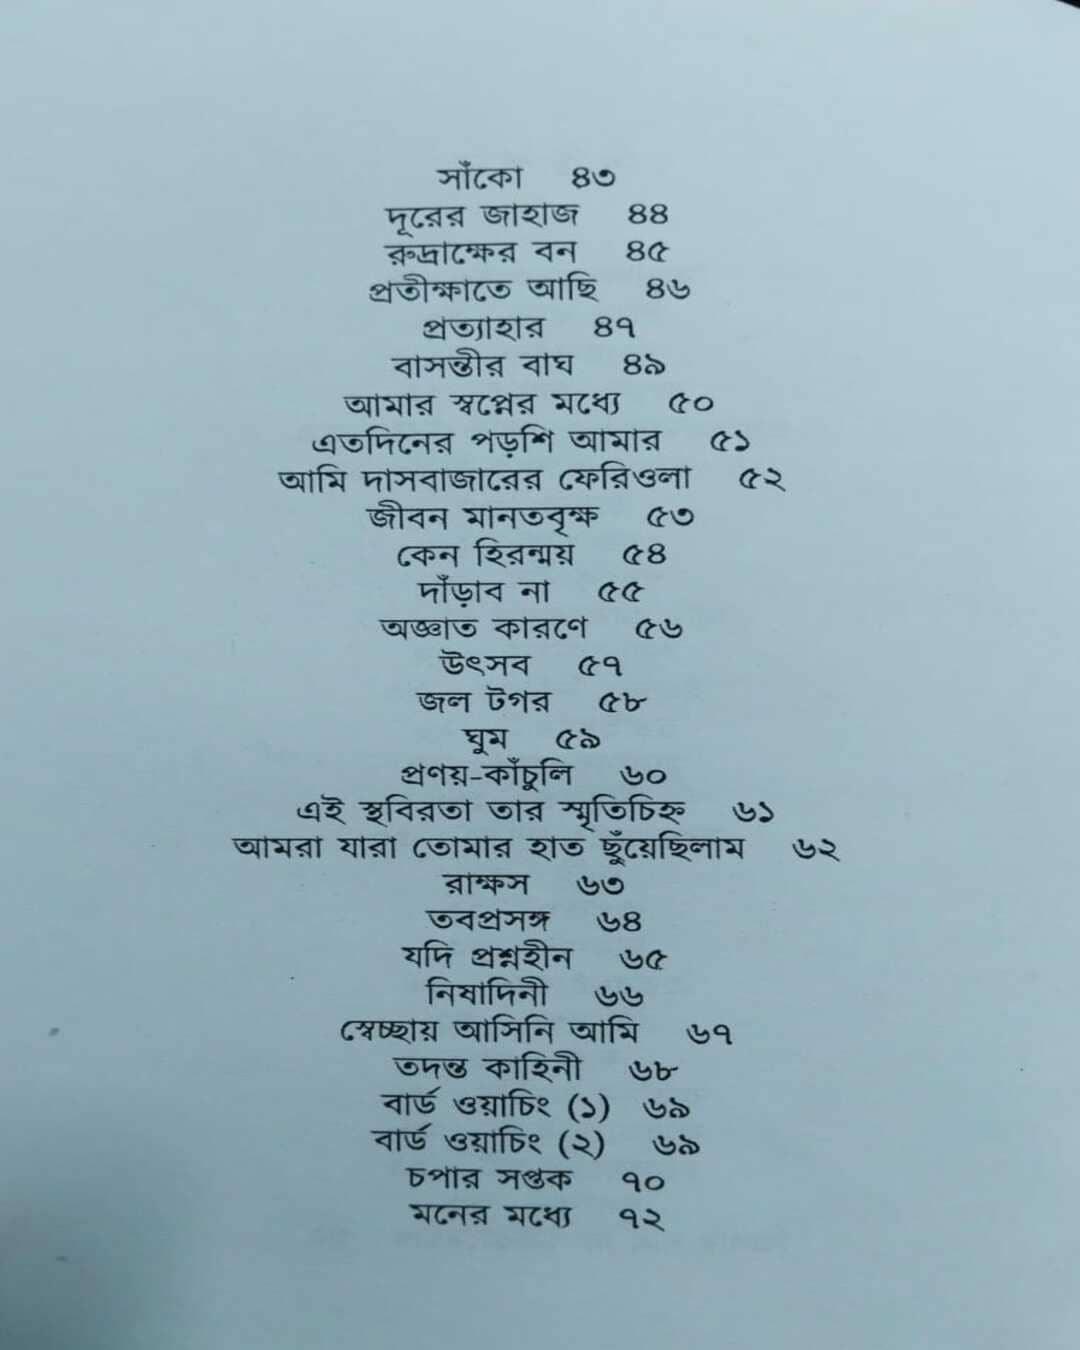 সাঁকো ৪৩
দূরের জাহাজ ৪৪
রুদ্রাক্ষের বন ৪৫
প্রতীক্ষাতে আছি ৪৬
প্রত্যাহার ৪৭
বাসন্তীর বাঘ ৪৯
আমার স্বপ্নের মধ্যে ৫০
এতদিনের পড়শি আমার ৫১
আমি দাসবাজারের ফেরিওলা ৫২
জীবন মানতবৃক্ষ ৫৩
কেন হিরন্ময় ৫৪
দাঁড়াব না ৫৫
অজ্ঞাত কারণে ৫৬
উৎসব ৫৭
জল টগর ৫৮
ঘুম ৫৯
প্রণয়-কাঁচুলি ৬০
এই স্থবিরতা তার স্মৃতিচিহ্ন ৬১
আমরা যারা তোমার হাত ছুঁয়েছিলাম ৬২
রাক্ষস ৬৩
তবপ্রসঙ্গ ৬৪
যদি প্রশ্নহীন ৬৫
নিষাদিনী ৬৬
স্বেচ্ছায় আসিনি আমি ৬৭
তদন্ত কাহিনী ৬৮
বার্ড ওয়াচিং (১) ৬৯
বার্ড ওয়াচিং (২) ৬৯
চপার সপ্তক ৭০
মনের মধ্যে ৭২